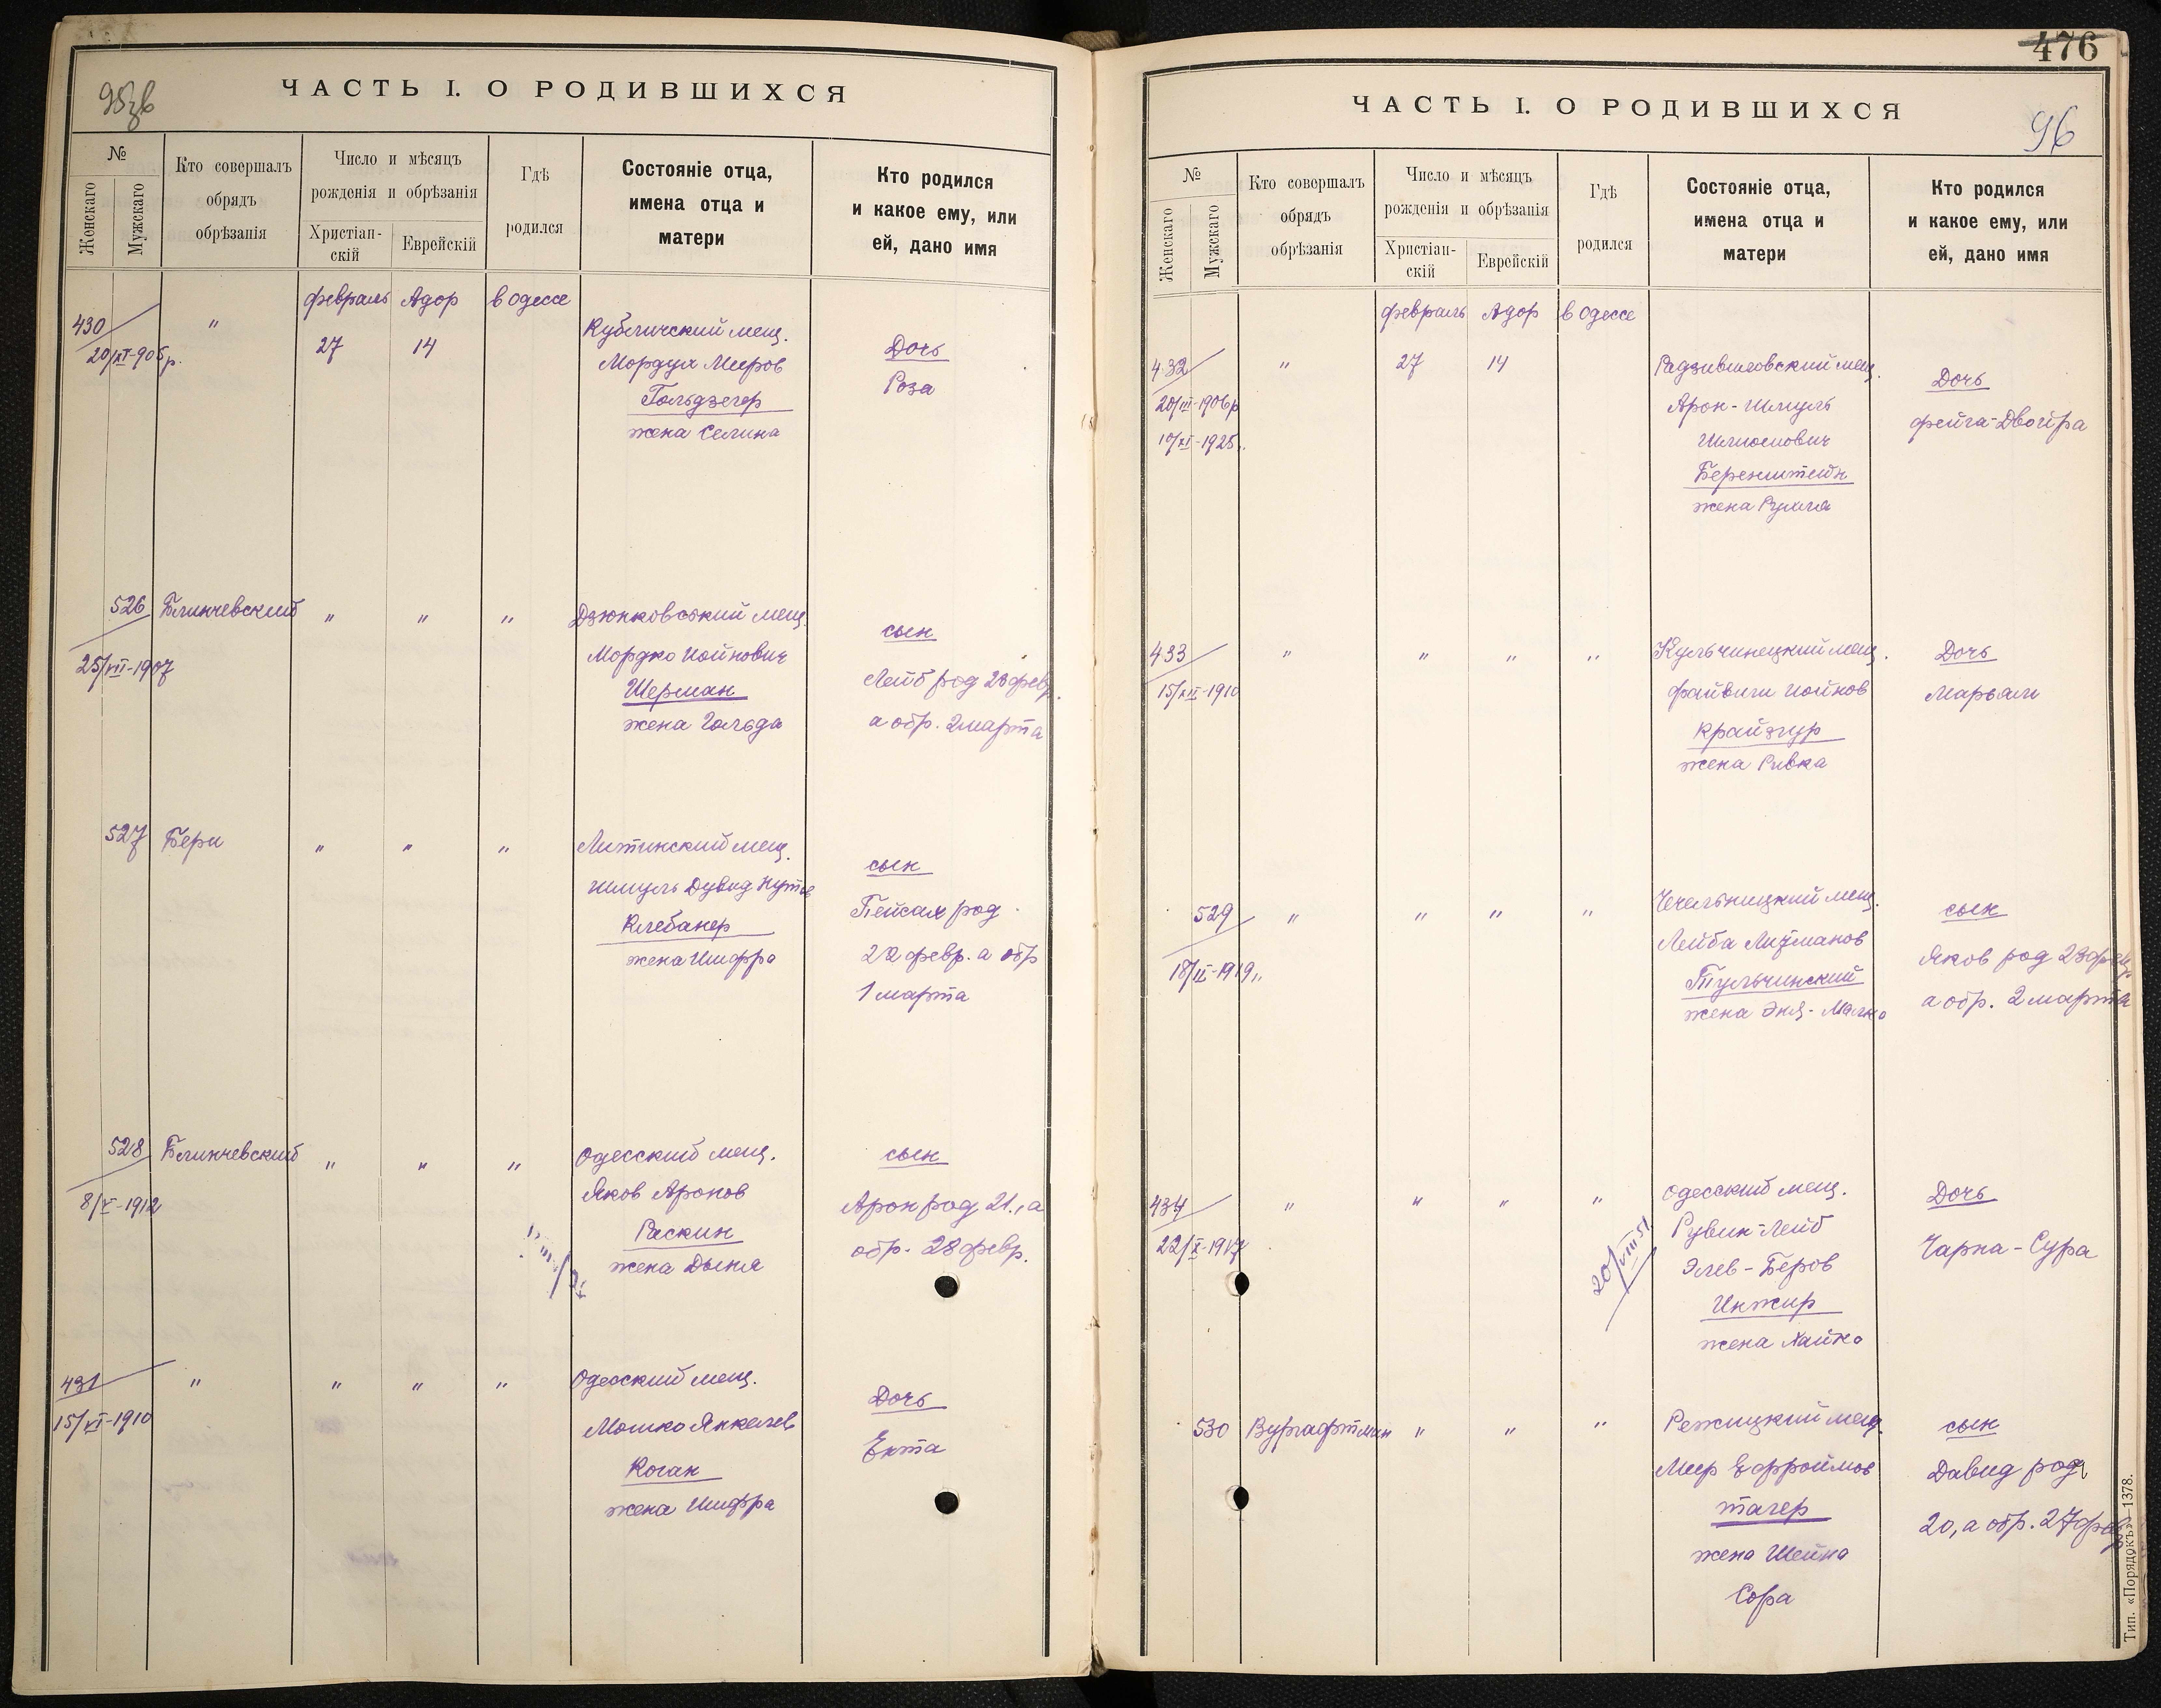 95зв
ЧАСТЬ I. О РОДИВШИХСЯ
№
Женскаго
Мужскаго
Кто совершалъ
обрядъ
обрѣзанія
Число и мѣсяцъ
рожденія и обрѣзанія
Христіан-
скій
Еврейскій
Гдѣ
родился
Состояніе отца,
имена отца и
матери
Кто родился
и какое ему, или
ей, дано имя
430
20/XI-905р.
"
февраль Адор в Одессе
27 14
Кубличский мещ.
Мордух Мееров
Гольдзегер
жена Селина
Дочь
Роза
526 Блинчевский " " "
25/VII-1907
Дзюнковский мещ.
Мордко Иойнович
Шерман
жена Гольда
сын
Лейб род 23 февр.
а обр. 2 марта
527 Бери " " "
Литинский мещ.
Шмуль Дувид Нутов
Клебанер
жена Шифра
сын
Пейсах род
22 февр. а обр
1 марта
528 Блинчевский " " "
8/V-1912
Одесский мещ.
Яков Аронов
Раскин
жена Дыня
сын
Арон род 21., а
обр. 28 февр.
431 " " " "
15/VI-1910
Одесский мещ.
Мошко Янкелев
Коган
жена Шифра
Дочь
Ента
476
96
ЧАСТЬ I. О РОДИВШИХСЯ
№
Женскаго
Мужскаго
Кто совершалъ
обрядъ
обрѣзанія
Число и мѣсяцъ
рожденія и обрѣзанія
Христіан-
скій
Еврейскій
Гдѣ
родился
Состояніе отца,
имена отца и
матери
Кто родился
и какое ему, или
ей, дано имя
февраль Адор в Одессе
432 " 27 14
20/III-1906р
10/XI-1925,.
Радзивиловский мещ.
Арон-Шмуль
Шлиомович
Беренштейн
жена Рухля
Дочь
Фейга-Двойра
433 " " " "
15/XII-1910
Кульчинецкий мещ.
Файвиш Иойнов
Крайзгур
жена Ривка
Дочь
Марьям
529 " " " "
18/II-1919,,
Чечельницкий мещ.
Лейба Лизманов
Тульчинский
жена Эня-Малка
сын
Яков род 23 фев.
а обр. 2 марта
434 " " " "
22/X-1917
20/VIII 51.
Одесский мещ.
Рувин-Лейб
Элев-Беров
Инжир
жена Хайка
Дочь
Чарна-Сура
530 Вургафтман " " "
Режицкий мещ.
Меер Ефроимов
Тагер
жена Шейна
Сора
сын
Давид род
20, а обр. 27 фев
Тип. «Порядокъ»—1378.